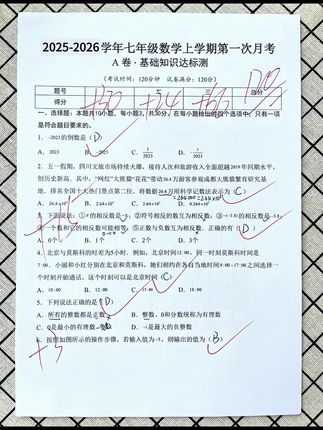 2025-2026学年七年级数学上学期第一次月考
A 卷·基础知识达标测
(考试时间:120分钟 试卷满分:120分)
题号 一 二 三 总分
得分 +30 +24 +66 120
一、选择题:本题共10小题,每小题3分,共30分。在每小题给出的四个选项中,只有一项
是符合题目要求的。
1. -2023的倒数是( D )
A. 2023 B. -2023 C. 1/2023 D. -1/2023
2. 五一假期,四川文旅市场持续火爆,接待人次和旅游收入全面超越2019年同期水平,
创历史新高,其中,“网红”大熊猫“花花”带动26.4万游客参观成都大熊猫繁育研究基
地,排名全国十大热门景点第二位,将数据26.4万用科学记数法表示为( C )
A. 26.4×10⁴ B. 2.64×10⁴ C. 2.64×10⁵ D. 0.264×10⁶
3. 下面说法:
的相反数是
②符号相反的数互为相反数;③-(-3.8)的相反数是-3.8;
一个数和它的相反数可能相等;⑤正数与负数互为相反数,正确的有( D )
A. 0个 B. 1个 C. 2个 D. 3个
4. 北京与莫斯科的时差为5小时,例如,北京时间12:00,同一时刻莫斯科时间是
7:00,小丽和小红分别在北京和莫斯科,她们相约在各自当地时间9:00~17:00之间选择一
个时刻开始通话,这个时刻可以是北京时间( C )
A. 10:00 B. 12:00 C. 15:00 D. 18:00
5. 下列说法正确的是( D )
A. 所有的整数都是正数 B. 整数、0和分数统称为有理数
C. 0是最小的有理数 D. -1是最大的负整数
6. 按照如图所示的操作步骤,若输入值为-3,则输出的值为( B )
+3